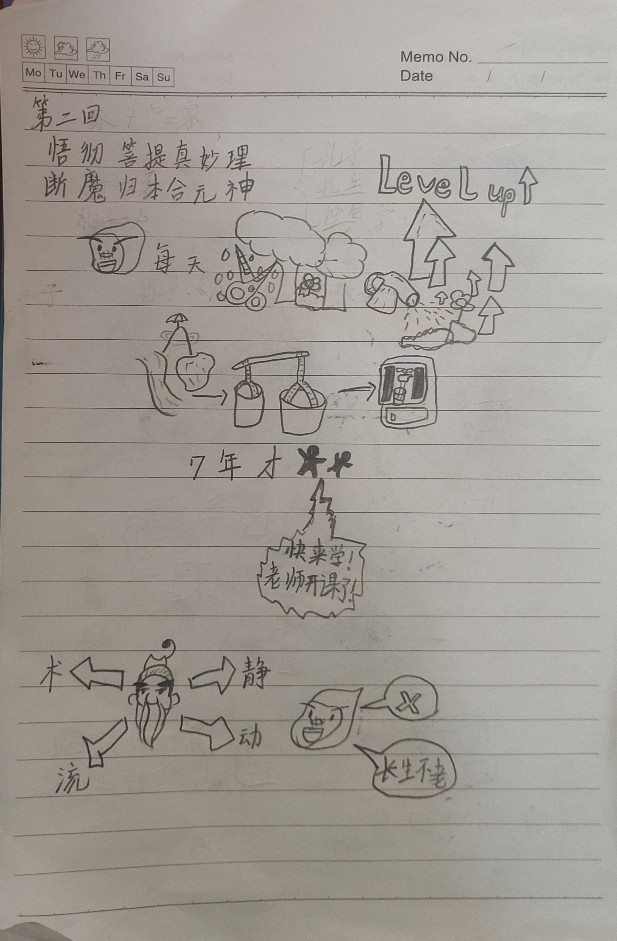 Mo Tu We Th Fr Sa Su
Memo No.
Date / /
第二回
悟彻菩提真妙理
断魔归本合元神
Level up
每天
7年才
快来学!
老师开课了!
术
静
流
动
长生不老